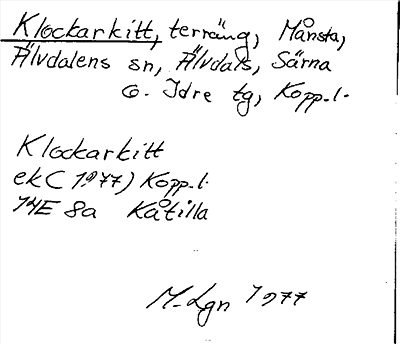 Klockarkitt, terräng, Månsta,
Älvdalens sn, Älvdals, Särna
o. Idre tg, Kopp.l.
Klockarkitt
ek(1977) Kopp.l.
14E 8a Kåtilla
M. Lgn 1977